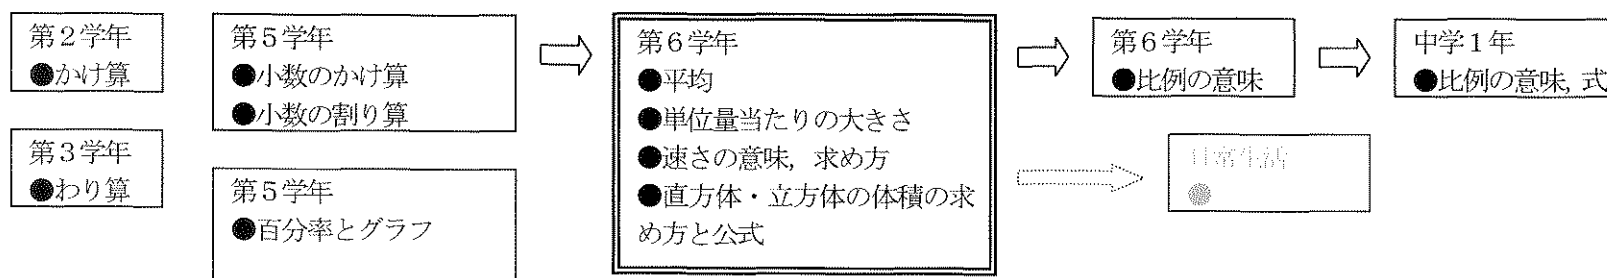 第２学年
●かけ算
第３学年
●わり算
第５学年
●小数のかけ算
●小数の割り算
第５学年
●百分率とグラフ
第６学年
●平均
●単位量当たりの大きさ
●速さの意味，求め方
●直方体・立方体の体積の求
め方と公式
第６学年
●比例の意味
中学１年
●比例の意味，式
日常生活
●